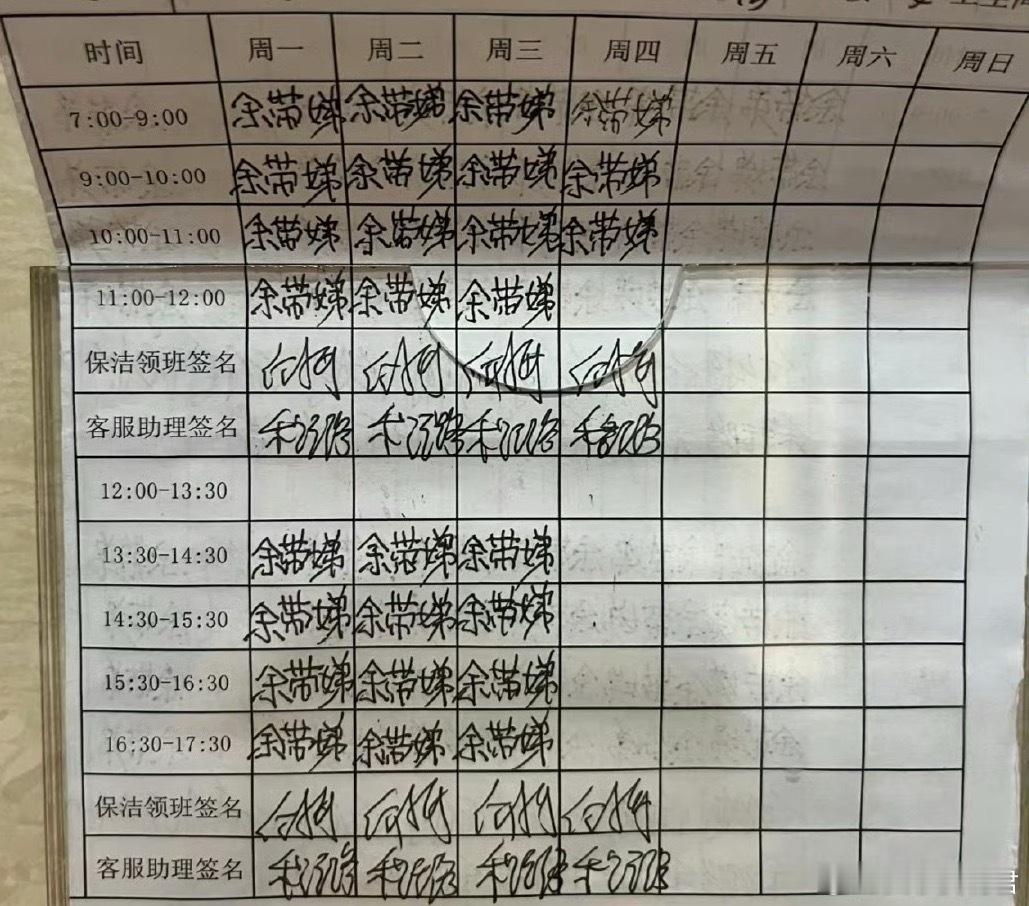 时间 周一 周二 周三 周四 周五 周六 周日
7:00-9:00 余带娣 余带娣 余带娣 余带娣
9:00-10:00 余带娣 余带娣 余带娣 余带娣
10:00-11:00 余带娣 余带娣 余带娣 余带娣
11:00-12:00 余带娣 余带娣 余带娣
保洁领班签名
客服助理签名
12:00-13:30
13:30-14:30 余带娣 余带娣 余带娣
14:30-15:30 余带娣 余带娣 余带娣
15:30-16:30 余带娣 余带娣 余带娣
16:30-17:30 余带娣 余带娣 余带娣
保洁领班签名
客服助理签名